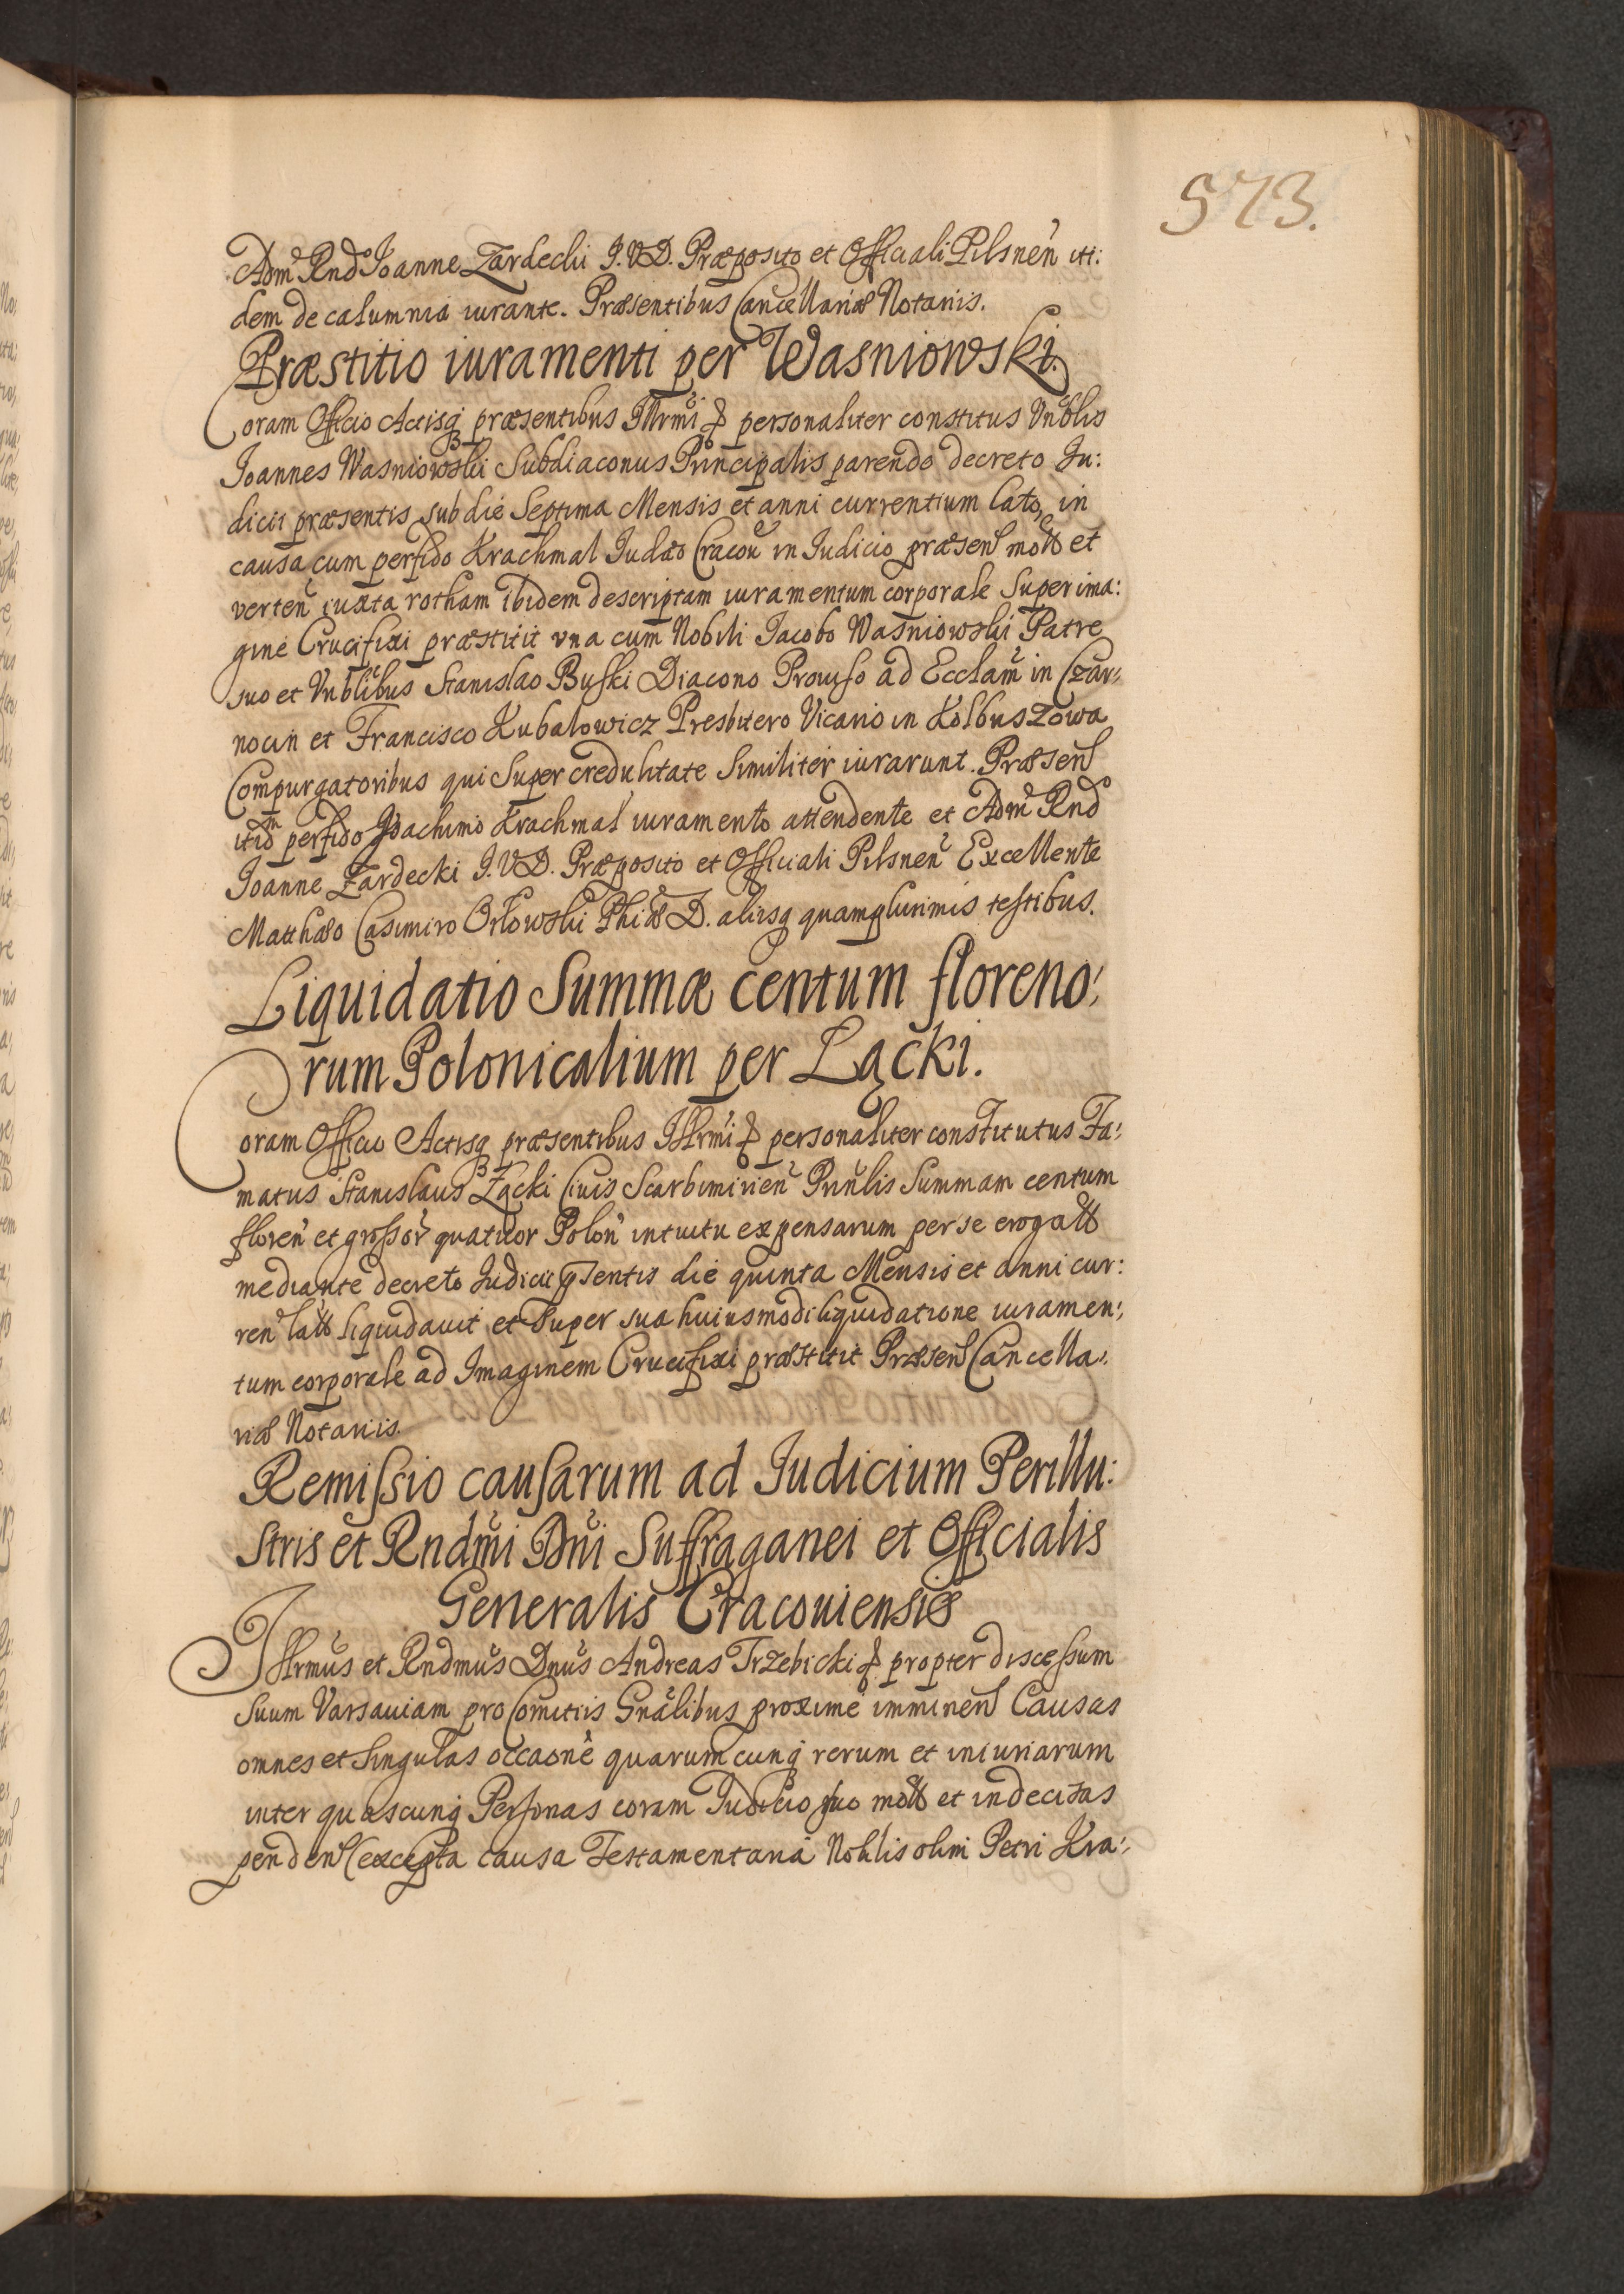 573.
Adm Rnd Joanne Zardecki I.V.D. Præposito et Officiali Pilsnen iti:
dem de calumnia iurante. Præsentibus Cancellariæ Notariis.
Præstitio iuramenti per Wasniowski.
Coram Officio Actisq præsentibus Illrmi personaliter constitus Vnblis
Joannes Wasniowski Subdiaconus Principalis parendo decreto Ju:
dicii præsentis sub die Septima Mensis et anni currentium lato, in
causa cum perfido Krachmal Judæo Cracou in Judicio præsen mott et
verten iuxta rotham ibidem descriptam iuramentum corporale Super ima:
gine Crucifixi præstitit vna cum Nobili Jacobo Wasniowski Patre
suo et Vnblibus Stanislao Buski Diacono Prouiso ad Ecclam in Czar:
nocin et Francisco Kubalowicz Presbitero Vicario in Kolbuszowa
Compurgatoribus qui Super credulitate Similiter iurarunt. Præsen
itidm perfido Joachimo Krachmal iuramento attendente et Adm Rnd
Joanne Zardecki I.V.D. Præposito et Officiali Pilsnen Excellente
Matthæo Casimiro Orłowski Phiæ D. aliisq quamplurimis testibus.
Liquidatio Summæ centum floreno:
rum Polonicalium per Łącki.
Coram Officio Actisq præsentibus Illrmi personaliter constitutus Fa:
matus Stanislaus Łącki Ciuis Scarbimirien Prinlis Summam centum
floren et grossor quatuor Polon intuitu expensarum per se erogatt
mediante decreto Judicii psentis die quinta Mensis et anni cur:
ren latt liquidauit et Super sua huiusmodi liquidatione iuramen:
tum corporale ad Imaginem Crucifixi præstitit Præsen Cancella:
riæ Notariis.
Remissio causarum ad Judicium Perillu:
stris et Rndmi Dni Suffraganei et Officialis
Generalis Cracouiensis
Illrmus et Rndmus Dnus Andreas Trzebicki propter discessum
suum Varsauiam pro Comitiis Gnalibus proxime imminen Causas
omnes et Singulas occaone quarumcunq rerum et iniuriarum
inter quascunq Personas coram Judicio suo mott et indecisas
penden (excepta causa Testamentaria Noblis olim Petri Kra: